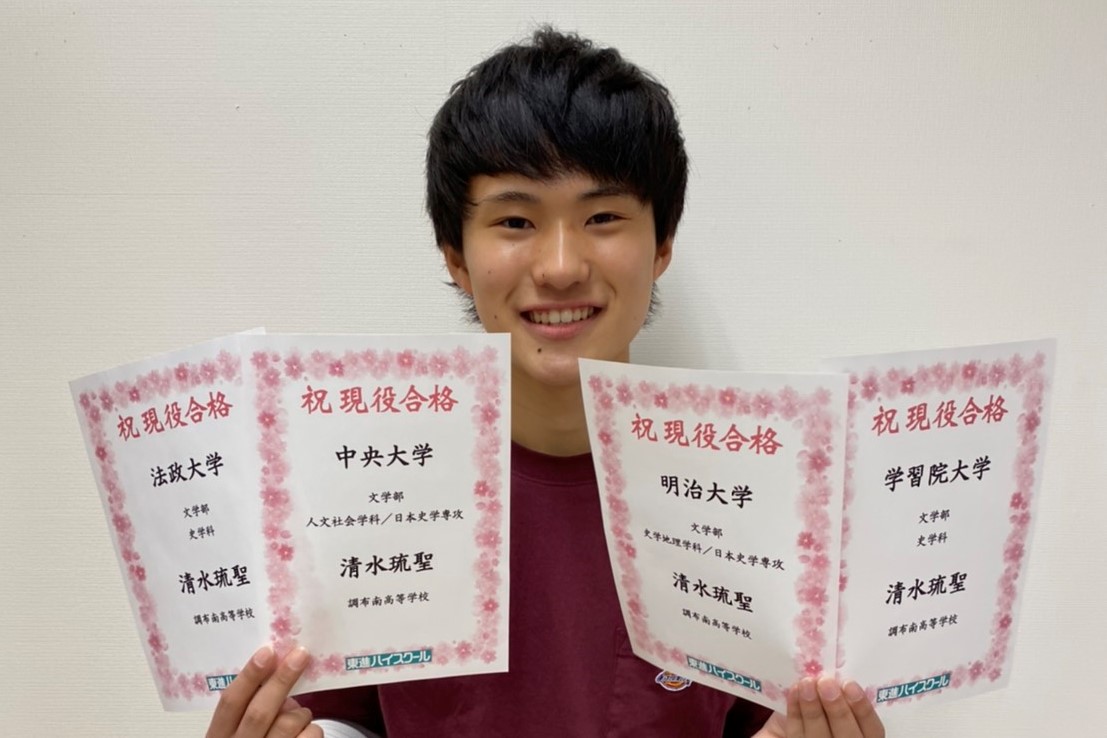 祝現役合格
法政大学
文学部
史学科
清水琉聖
調布南高等学校
東進ハイ
祝現役合格
中央大学
文学部
人文社会学科／日本史学専攻
清水琉聖
調布南高等学校
東進ハイスクール
祝現役合格
明治大学
文学部
史学地理学科／日本史学専攻
清水琉聖
調布南高等学校
東進ハイスクール
祝現役合格
学習院大学
文学部
史学科
清水琉聖
調布南高等学校
東進ハイスクール
Dickies